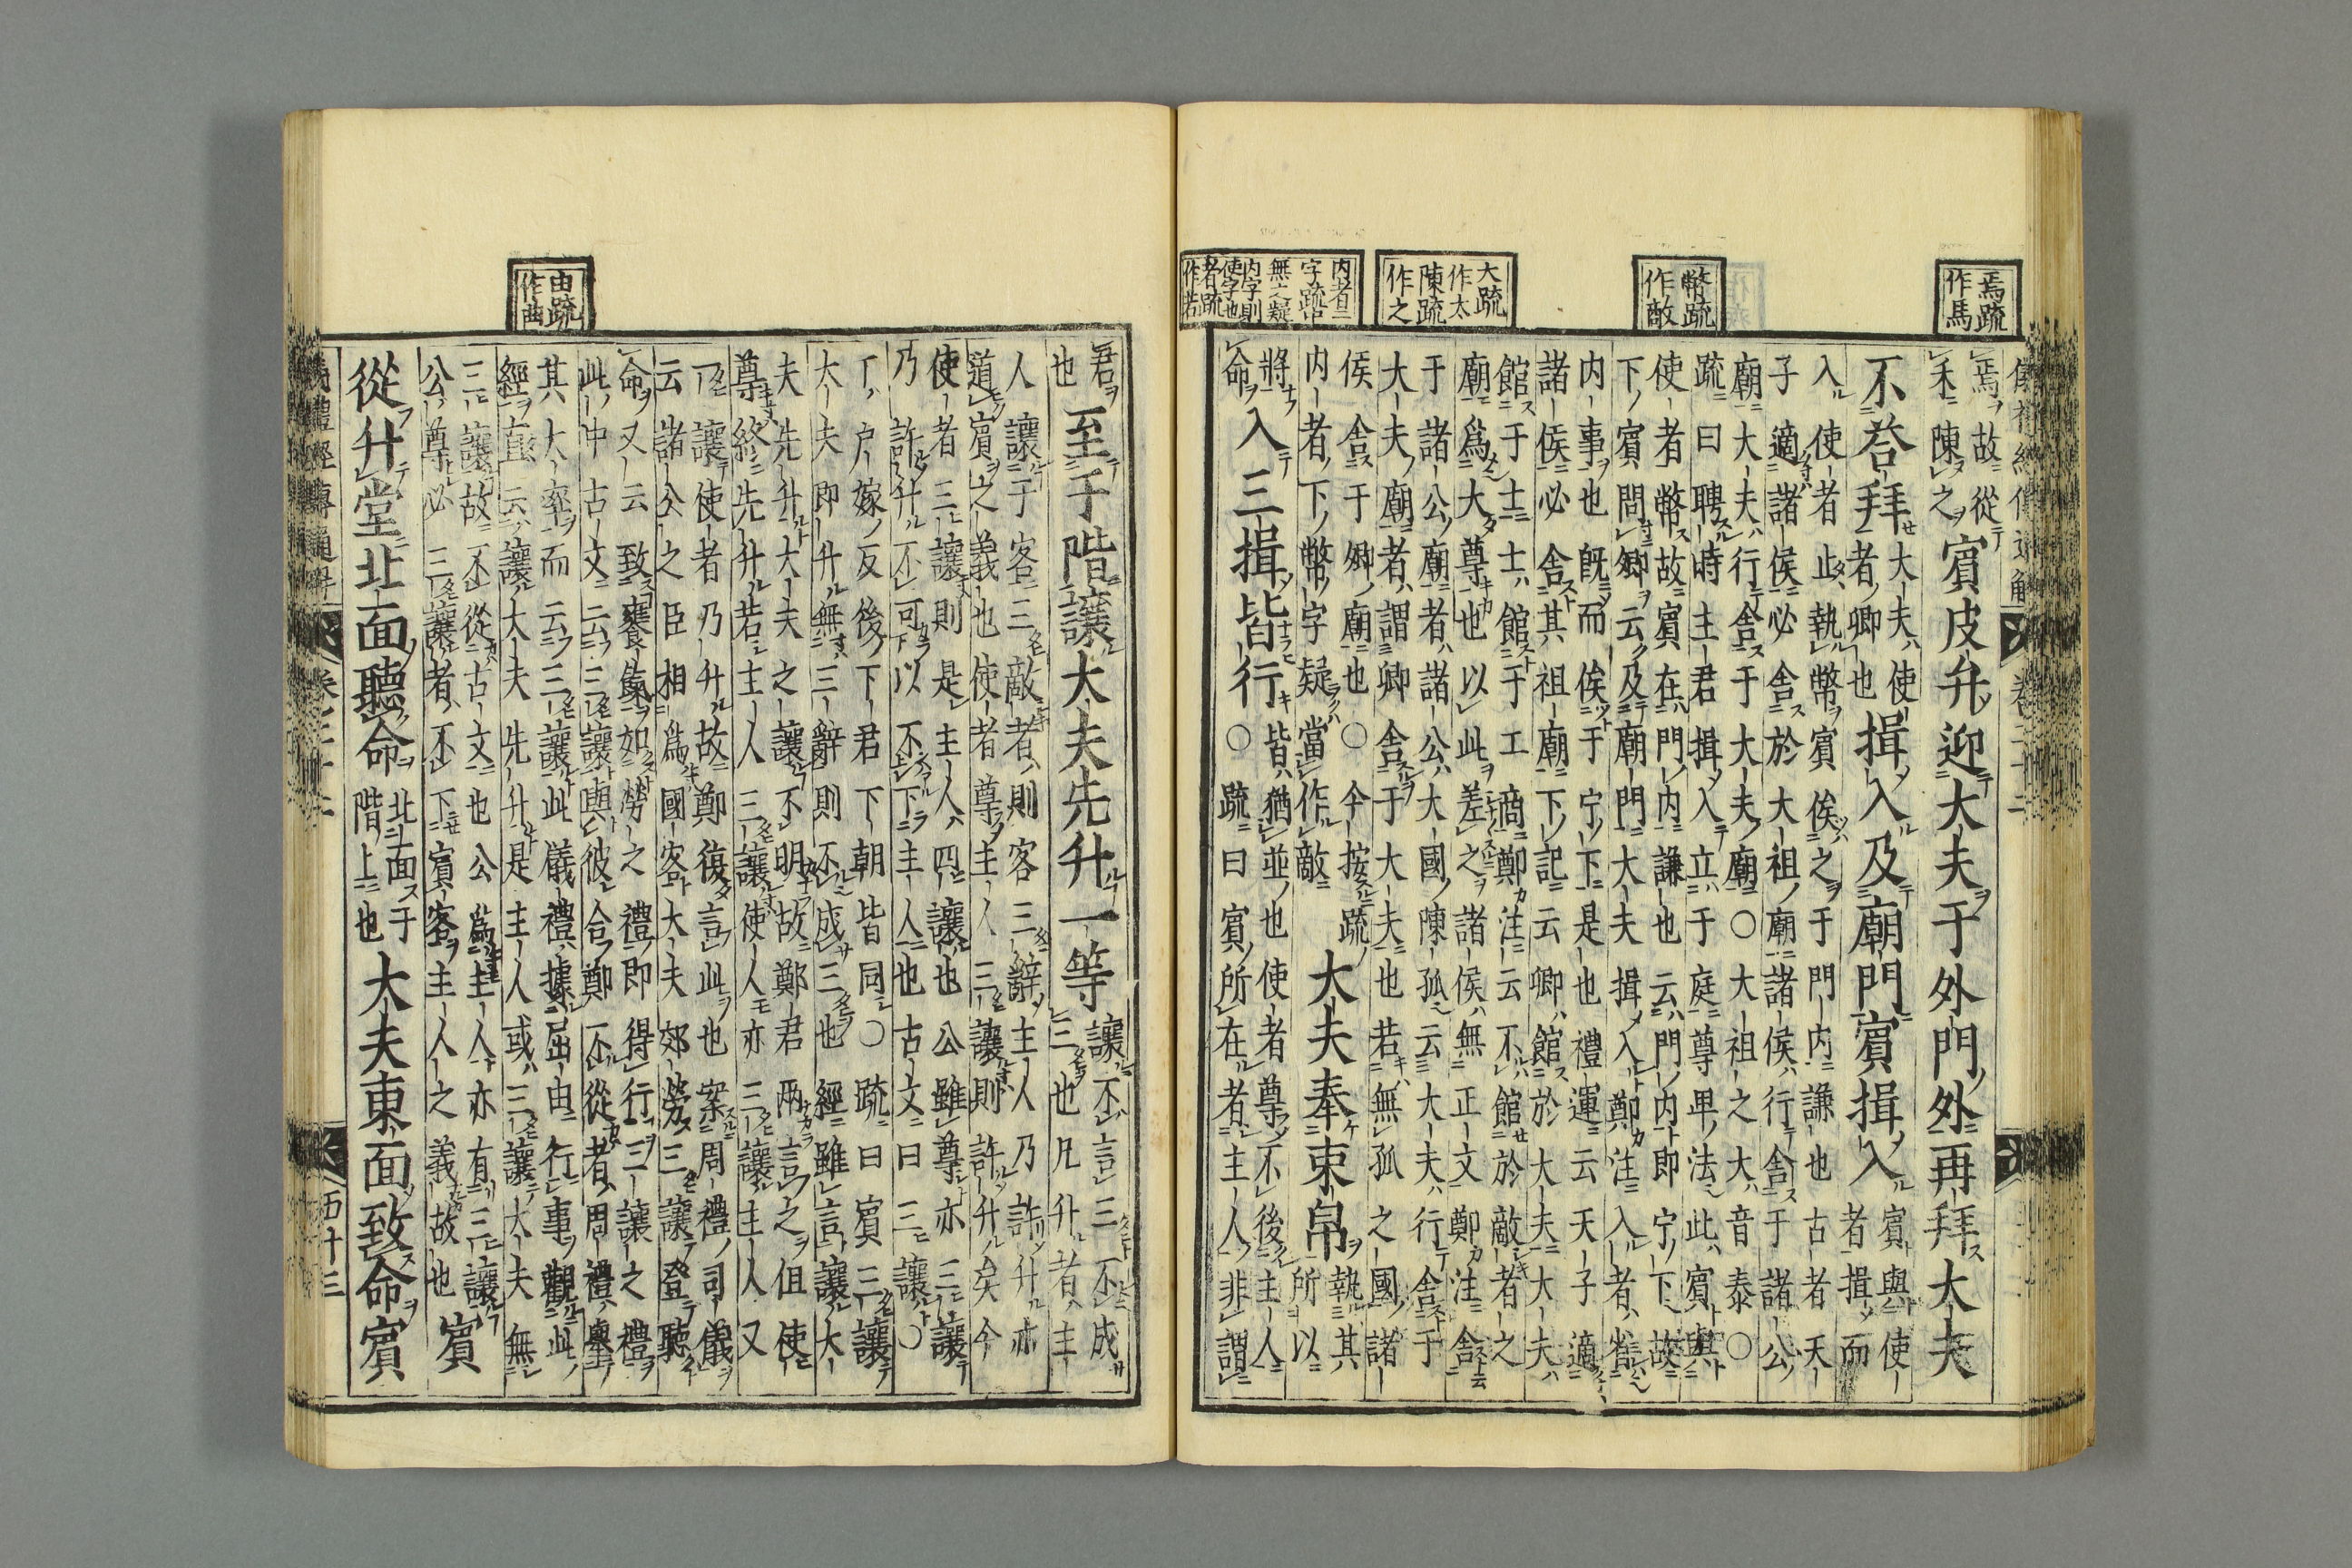 焉疏
作馬
幣疏
作敵
大疏
作太
陳疏
作之
内者二
字疏中
無之疑
内字則
使字也
者疏
作若
焉故從禾陳之賓皮弁迎大夫于外門外再拜大夫
不荅拜大夫使者卿也揖入及廟門賓揖入賓與使者揖而
入使者止執幣賓俟之于門内謙也古者天
子適諸侯必舍於大祖廟諸侯行舍于諸公
廟大夫行舍于大夫廟○大祖之大音泰○
疏曰聘時主君揖入立于庭尊卑法此賓與
使者幣故賓在門内謙也云門内即宁下故
下賓問卿云及廟門大夫揖入鄭注入者省
内事也既而俟于宁下是也禮運云天子適
諸侯必舍其祖廟下記云卿館於大夫大夫
館于士士館于工商鄭注云不館於敵者之
廟爲大尊也以此差之諸侯無正文鄭注舍
于諸公廟者諸公大國陳孤云大夫行舍于
大夫廟者謂卿舍于大夫也若無孤之國諸
侯舍于卿廟也○今按疏
内者下幣字疑當作敵大夫奉束帛執其所以
將命入三揖皆行皆猶並也使者尊不後主人
○疏曰賓所在者主人非謂
由疏
作曲
君也至于階讓大夫先升一等讓不言三不成三也凡升者主
人讓于客三敵者則客三辭主人乃許升亦
道賓之義也使者尊主人三讓則許升矣今
使者三讓則是主人四讓也公雖尊亦三讓
乃許升不可以不下主人也古文曰三讓○
丁戸嫁反後下君下朝皆同○疏曰賓三讓
大夫即升無三辭則不成三也經雖言讓大
夫先升大夫之讓不明故鄭君兩言之但使
尊終先升若主人三讓使人亦三讓主人又
一讓使者乃升故鄭復言此也案周禮司儀
云諸公之臣相爲國客大夫郊勞三讓登聽
命又云致饔餼如勞之禮即得行三讓之禮
此中古文云三讓與彼合鄭不從者周禮舉
其大率而云三讓此儀禮據屈由行事觀此
經直云讓大夫先升是主人或三讓大夫無
三讓故不從古文也公爲主人亦有三讓
公尊必三讓者不下賓客主人之義故也賓
從升堂北面聽命北面于階上也大夫東面致命賓
儀禮經傳通解 卷之二十二 五十三